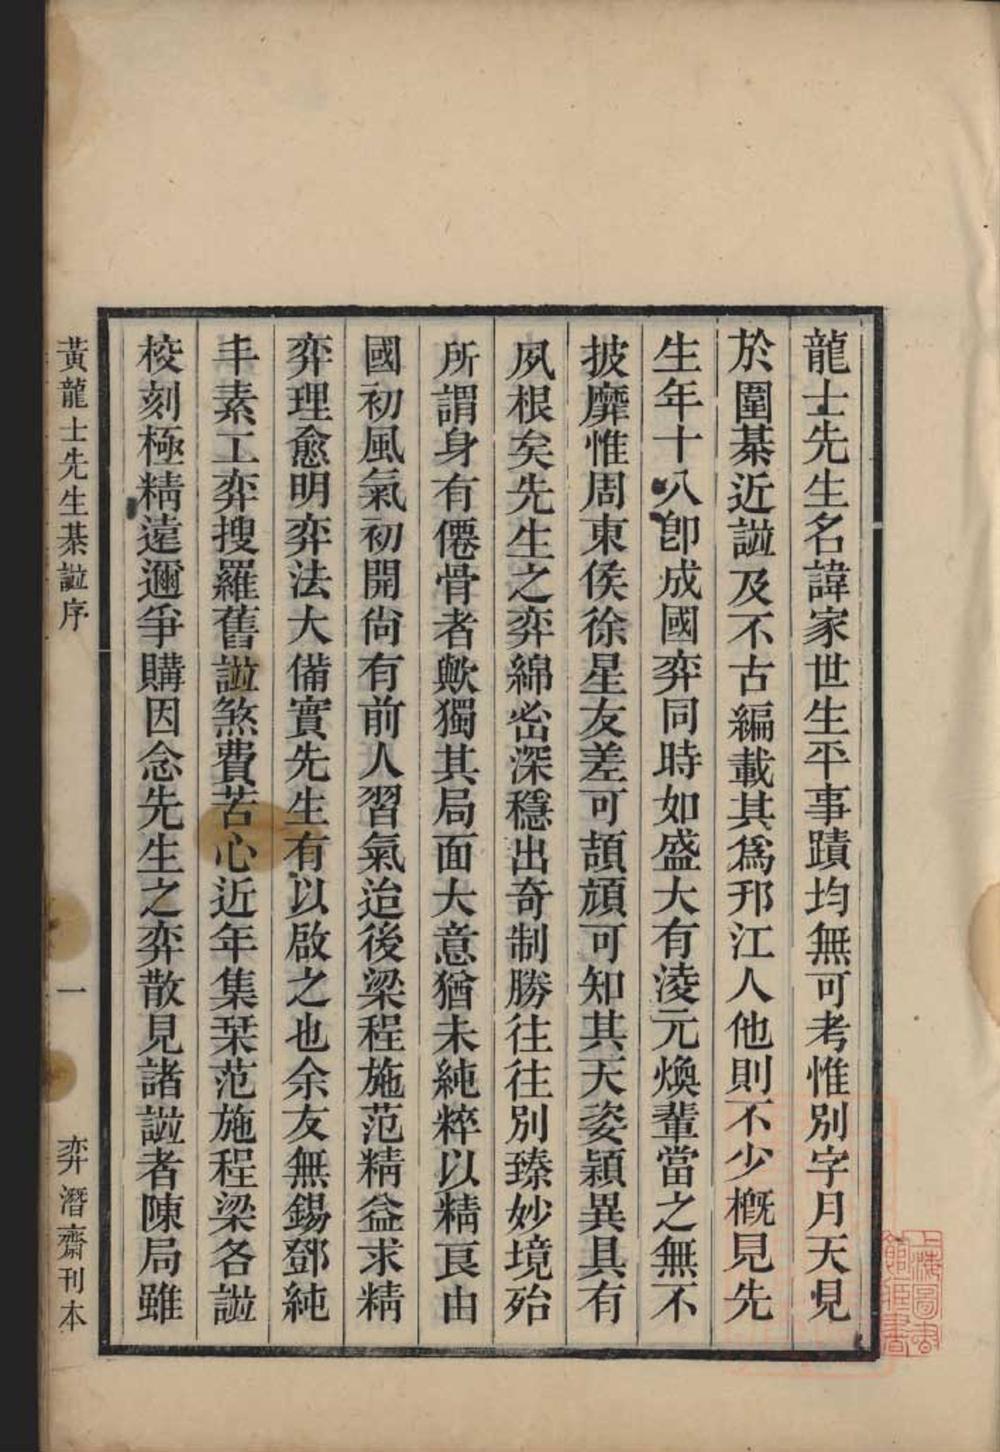 龍士先生名諱家世生平事蹟均無可考惟別字月天見
於圍棊近譜及不古編載其爲邗江人他則不少槪見先
生年十八卽成國弈同時如盛大有淩元煥輩當之無不
披靡惟周東侯徐星友差可頡頏可知其天姿穎異具有
夙根矣先生之弈綿密深穩出奇制勝往往別臻妙境殆
所謂身有僊骨者歟獨其局面大意猶未純粹以精良由
國初風氣初開尙有前人習氣迨後梁程施范精益求精
弈理愈明弈法大備實先生有以啟之也余友無錫鄧純
丰素工弈搜羅舊譜煞費苦心近年集栞范施程梁各譜
校刻極精遠邇爭購因念先生之弈散見諸譜者陳局雖
黃龍士先生棊譜序
一
弈潛齋刊本
上海圖書
館藏書